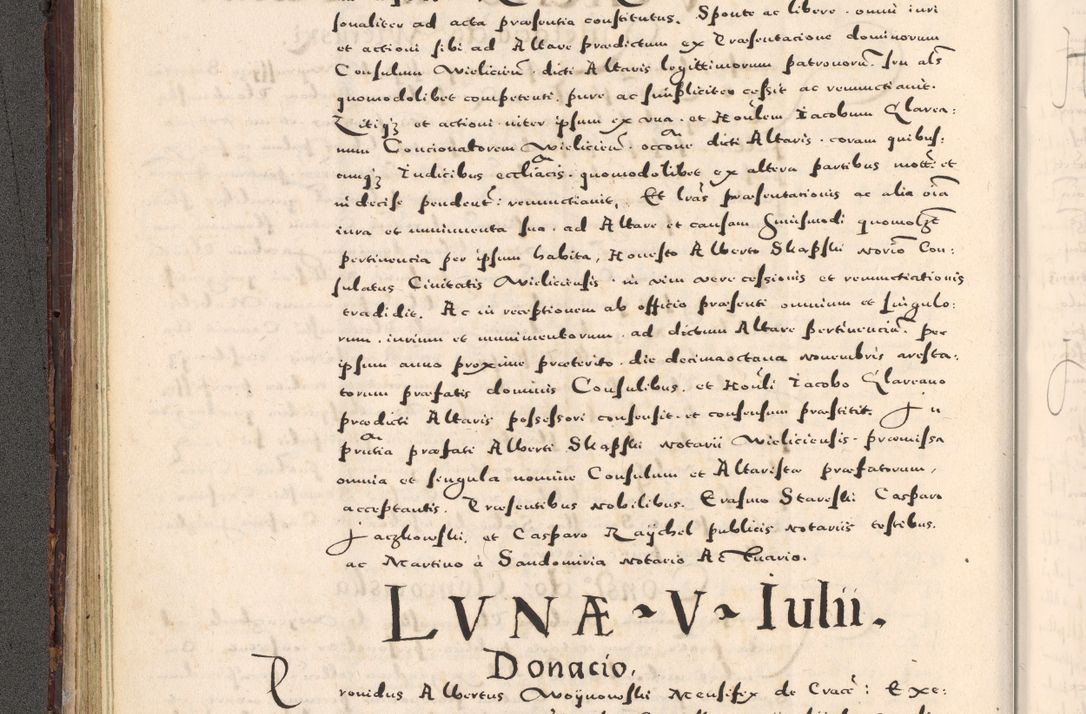 sonaliter ad acta præsentia constitutus. Sponte ac libere. omni iuri
et actioni sibi ad Altare prædictum ex Præsentacione dominorum
Consulum Wielicien: dicti Altaris legittimorum patronorũ. seu als
quomodolibet competenti. pure ac simpliciter cessit ac renunctiauit.
Litiq3 et actioni inter ipsum ex vna. et Honlem Iacobum Clarea:
num Concionatorem Wielicien. occone dicti Altaris. coram quibus:
cunq3 Iudicibus eccliacis. quomodolibet ex altera partibus mott: et
indecise pendent: renunctiauit. Et lras præsentationis ac alia oia
iura et munimenta sua. ad Altare et causam huiusmodi quomolzt
pertinencia per ipsum habita, Honesto Alberto Skapski notio Con:
sulatus Ciuitatis Wieliciensis. in vim vere cessionis et renunctiationis
tradidit. Ac in receptionem ab officio præsenti omnium et singulo:
rum. iurium et munimentorum. ad dictum Altare pertinenciũ. per
ipsum anno proxime præterito. die decimaoctaua Nouembris aresta:
torum præfatis dominis Consulibus. et Honli Iacobo Clareano
prædicti Altaris possessori consensit. et consensum præstitit. In
prntia præfati Alberti Skapski notarii Wieliciensis. præmissa
omnia et singula nomine Consulum et Altaristæ præfatorum,
acceptantis. Præsentibus nobilibus. Erasmo Stareski Casparo
Jaczkowski, et Casparo Raÿchel publicis notariis testibus.
ac Martino à Sandomiria notario Actuario.
LVNÆ ~ V ~ Iulii.
Donacio.
Prouidus Albertus Woÿnowski Mensifex de Crac: Exe: